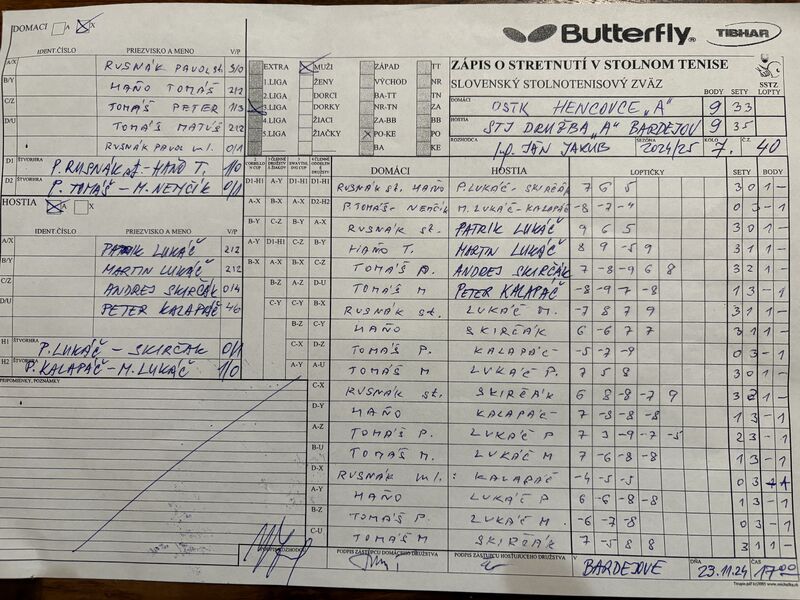 DOMACI A X
Butterfly® TIBHAR
IDENT.ČÍSLO PRIEZVISKO A MENO V/P
A/X RUSNÁK PAVOL st. 3/0
B/Y HAŇO TOMÁŠ 2/2
C/Z TOMÁŠ PETER 1/3
D/U TOMÁŠ MATÚŠ 2/2
RUSNÁK PAVOL ml. 0/1
D1 ŠTVORHRA P. RUSNÁK st. - HAŇO T. 1/0
D2 ŠTVORHRA P. TOMÁŠ - M. NEMČÍK 0/1
HOSTIA A X
IDENT.ČÍSLO PRIEZVISKO A MENO V/P
A/X PATRIK LUKÁČ 2/2
B/Y MARTIN LUKÁČ 2/2
C/Z ANDREJ SKIRČÁK 0/4
D/U PETER KALAPÁČ 4/0
H1 ŠTVORHRA P. LUKÁČ - SKIRČÁK 0/1
H2 ŠTVORHRA P. KALAPÁČ - M. LUKÁČ 1/0
PRIPOMIENKY, POZNÁMKY
EXTRA MUŽI ZÁPAD TT
1.LIGA ŽENY VÝCHOD NR
2.LIGA DORCI BA-TT TN
3.LIGA DORKY NR-TN ZA
4.LIGA ŽIACI ZA-BB BB
5.LIGA ŽIAČKY PO-KE PO
BA KE
ZÁPIS O STRETNUTÍ V STOLNOM TENISE
SLOVENSKÝ STOLNOTENISOVÝ ZVÄZ
SSTZ
BODY SETY LOPTY
DOMÁCI OSTK HENCOVCE "A" 9 33
HOSTIA STJ DRUŽBA "A" BARDEJOV 9 35
ROZHODCA JÁN JAKUB SEZÓNA 2024/25 KOLO 7. Č. 40
DOMÁCI HOSTIA LOPTIČKY SETY BODY
D1-H1 A-Y D1-H1 D1-H1 RUSNÁK st. HAŇO P. LUKÁČ - SKIRČÁK 7 6 5 3 0 1 -
A-X B-X A-X D2-H2 P. TOMÁŠ - NEMČÍK M. LUKÁČ - KALAPÁČ -8 -7 -4 0 3 - 1
B-Y C-Z B-Y A-X RUSNÁK st. PATRIK LUKÁČ 9 6 5 3 0 1 -
A-Y D1-H1 C-Z B-Y HAŇO T. MARTIN LUKÁČ 8 9 -5 9 3 1 1 -
B-X A-X D1-H1 C-Z TOMÁŠ P. ANDREJ SKIRČÁK 7 -8 -9 6 8 3 2 1 -
B-Z A-Z D-U TOMÁŠ M PETER KALAPÁČ -8 -9 7 -8 1 3 - 1
C-Y C-Y B-X RUSNÁK st. LUKÁČ M. -7 8 7 9 3 1 1 -
B-Z C-Y HAŇO SKIRČÁK 6 -6 7 7 3 1 1 -
C-X D-Z TOMÁŠ P. KALAPÁČ -5 -7 -9 0 3 - 1
A-Y A-U TOMÁŠ M LUKÁČ P. 7 5 8 3 0 1 -
C-X RUSNÁK st. SKIRČÁK 6 8 -8 -7 9 3 2 1 -
D-Y HAŇO KALAPÁČ 7 -8 -8 -8 1 3 - 1
A-Z TOMÁŠ P. LUKÁČ P 7 3 -9 -7 -5 2 3 - 1
B-U TOMÁŠ M. LUKÁČ M 7 -6 -8 -8 1 3 - 1
D-X RUSNÁK ml. : KALAPÁČ -4 -5 -5 0 3
A-Y HAŇO LUKÁČ P 6 -6 -8 -8 1 3 - 1
B-Z TOMÁŠ P LUKÁČ M -6 -7 -8 0 3 - 1
C-U TOMÁŠ M SKIRČÁK 7 -5 8 8 3 1 1 -
PODPIS ROZHODCU PODPIS ZÁSTUPCU DOMÁCEHO DRUŽSTVA PODPIS ZÁSTUPCU HOSŤUJÚCEHO DRUŽSTVA V BARDEJOVE DŇA 23.11.24 ČAS 17:00